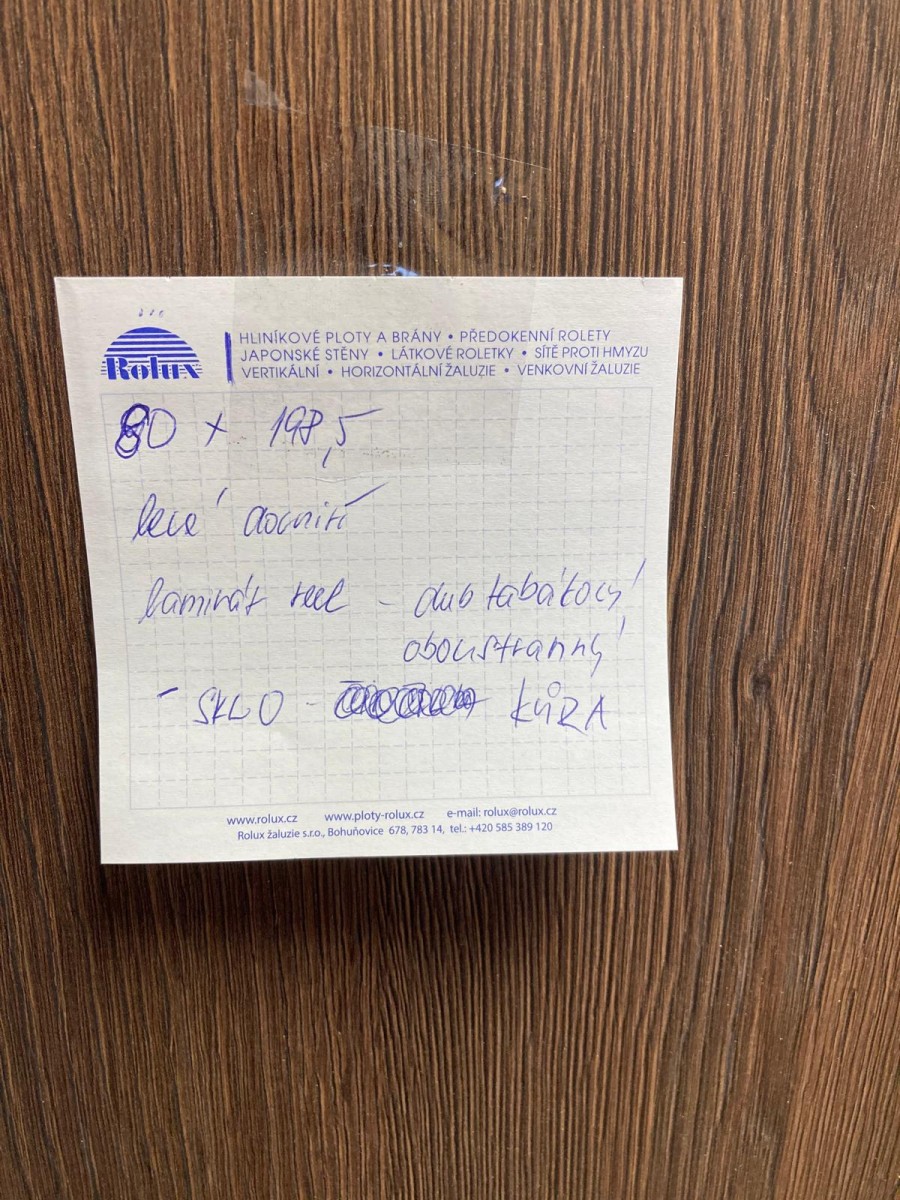 Rolux
HLINÍKOVÉ PLOTY A BRÁNY • PŘEDOKENNÍ ROLETY
JAPONSKÉ STĚNY • LÁTKOVÉ ROLETKY • SÍTĚ PROTI HMYZU
VERTIKÁLNÍ • HORIZONTÁLNÍ ŽALUZIE • VENKOVNÍ ŽALUZIE
80 x 198,5
levé dovniř
laminát reel - dub tabákový
oboustranný
- SKLO - KŮRA
www.rolux.cz www.ploty-rolux.cz e-mail: rolux@rolux.cz
Rolux žaluzie s.r.o., Bohuňovice 678, 783 14, tel.: +420 585 389 120